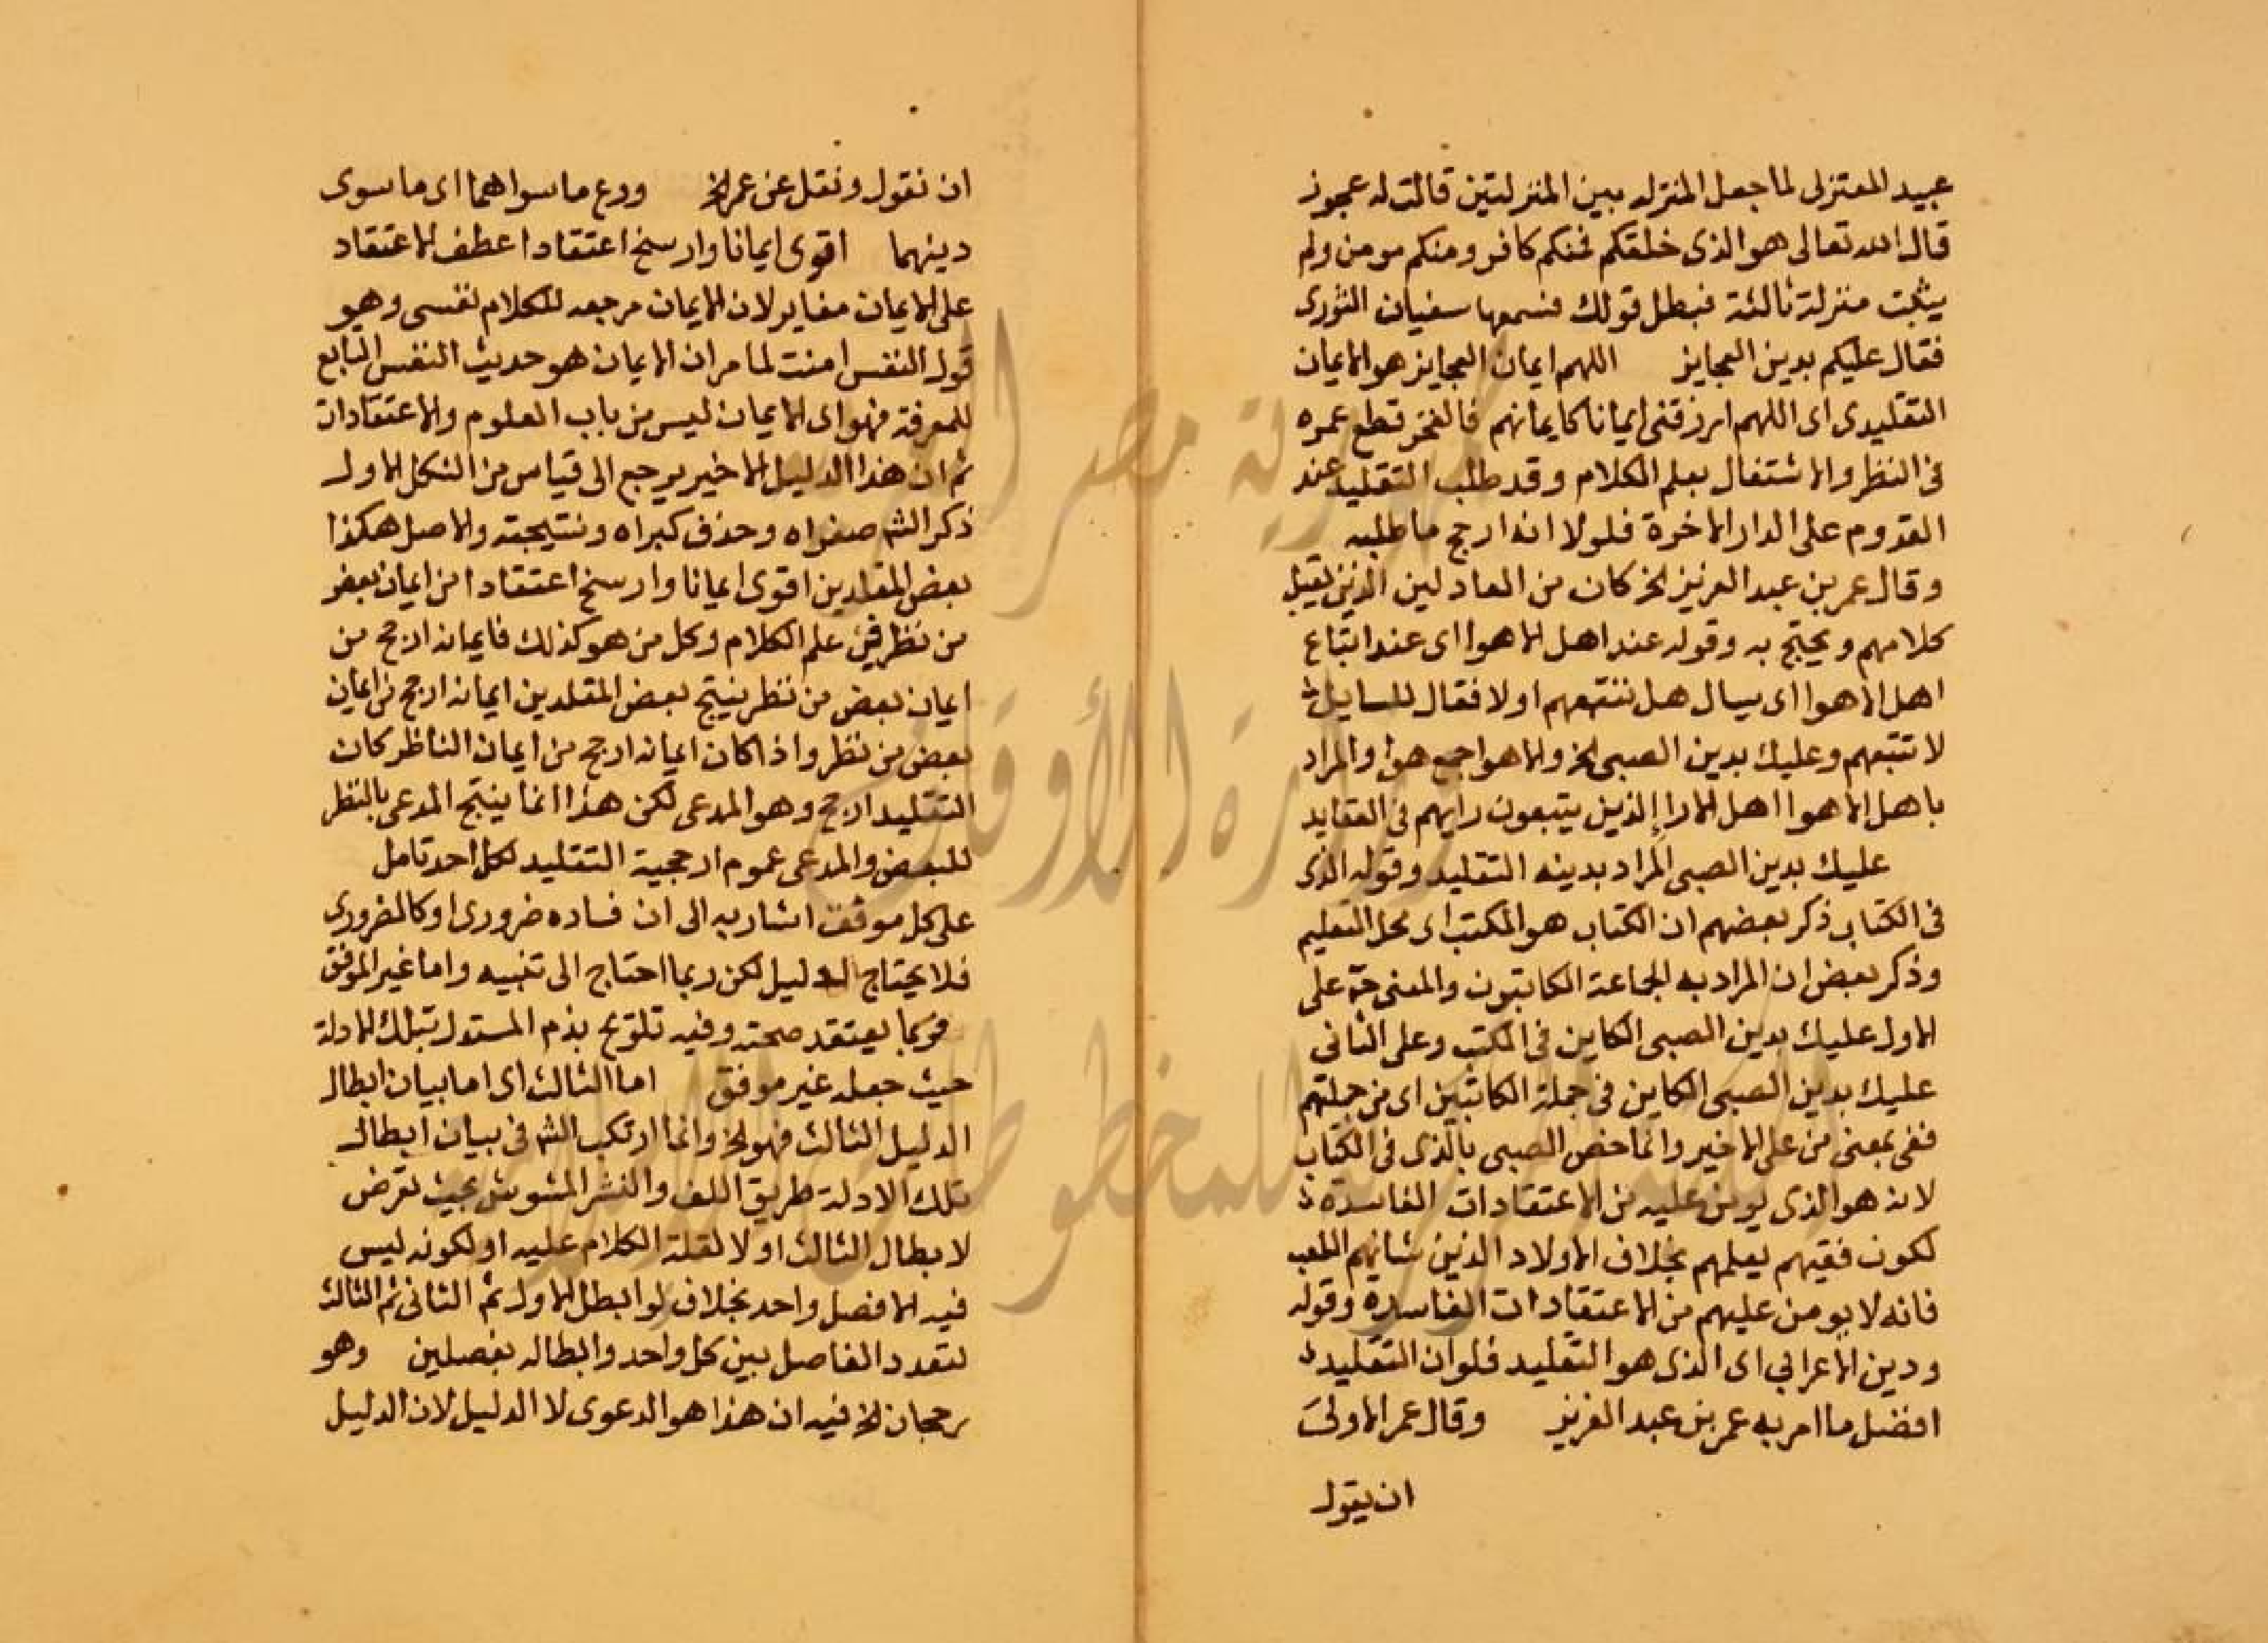 عبيد المعتزلى لما جعل المنزله بين المنزلتين قالت له عجوز
قال الله تعالى هو الذى خلقكم فمنكم كافر ومنكم مومن ولم
يثبت منزلة ثالثة فبطل قولك فسمعها سفيان الثورى
فقال عليكم بدين العجايز اللهم ايمان العجايز هو الايمان
التقليدى اى اللهم ارزقنى ايمانا كايمانهم فالفخر قطع عمره
فى النظر والاشتغال بعلم الكلام وقد طلب التقليد عند
القدوم على الدار الاخرة فلولا انه ارجح ما طلبه
وقال عمر بن عبد العزيز الخ كان من العادلين الذين يقبل
كلامهم ويحتج به وقوله عند اهل الاهوا اى عند اتباع
اهل الاهوا اى سيال هل نتبعهم اولا فقال للسايل
لا تتبعهم وعليك بدين الصبى الخ والاهوا جمع هوا والمراد
باهل الاهوا اهل الارا الذين يتبعون رايهم فى العقايد
عليك بدين الصبى المراد بدينه التقليد وقوله الذى
فى الكتاب ذكر بعضهم ان الكتاب هو المكتب اى محل التعليم
وذكر بعض ان المراد به الجماعة الكاتبون والمعنى ح على
الاول عليك بدين الصبى الكاين فى المكتب وعلى الثانى
عليك بدين الصبى الكاين فى جملة الكاتبين اى من جملتهم
ففى بمعنى من على الاخير وانما خص الصبى بالذى فى الكتاب
لانه هو الذى يومن عليه من الاعتقادات الفاسدة
لكون فقيهم يعلمهم بخلاف الاولاد الذين شانهم اللعب
فانه لا يومن عليهم من الاعتقادات الفاسدة وقوله
ودين الاعرابي اى الذى هو التقليد فلو ان التقليد
افضل ما امر به عمر بن عبد العزيز وقال عمر الاولى
ان يقول
ان نقول ونقل عن عمر الخ ودع ما سواهما اى ما سوى
دينهما اقوى ايمانا وارسخ اعتقادا عطف الاعتقاد
على الايمان مغاير لان الايمان مرجعه للكلام نفسى وهو
قول النفس امنت لما مر ان الايمان هو حديث النفس التابع
للمعرفة فهو اى الايمان ليس من باب العلوم والاعتقادات
ثم ان هذا الدليل الاخير يرجع الى قياس من الشكل الاول
ذكر الشم صغراه وحذف كبراه ونتيجته والاصل هكذا
بعض المقلدين اقوى ايمانا وارسخ اعتقادا من ايمان بعض
من نظر في علم الكلام وكل من هو كذلك فايمانه ارجح من
ايمان بعض من نظر ينتج بعض المقلدين ايمانه ارجح من ايمان
بعض من نظر واذا كان ايمانه ارجح من ايمان الناظر كان
التقليد ارجح وهو المدعى لكن هذا انما ينتج المدعى بالنظر
للبعض والمدعى عموم ارجحية التقليد لكل احد تامل
على كل موفق اشار به الى ان فساده ضرورى او كالضرورى
فلا يحتاج الدليل لكن ربما احتاج الى تنبيه واما غير الموفق
فربما يعتقد صحته وفيه تلويح بذم المستدل بتلك الادلة
حيث جعله غير موفق اما الثالث اى اما بيان ابطال
الدليل الثالث فهو الخ وانما ارتكب الشم فى بيان ابطال
تلك الادلة طريق اللف والنشر المشوش بحيث تعرض
لابطال الثالث اولا لقلة الكلام عليه او لكونه ليس
فيه الا فصل واحد بخلاف لو ابطل الاول ثم الثانى ثم الثالث
لتعدد الفاصل بين كل واحد وابطاله بفصلين وهو
رجحان الخ فيه ان هذا هو الدعوى لا الدليل لان الدليل